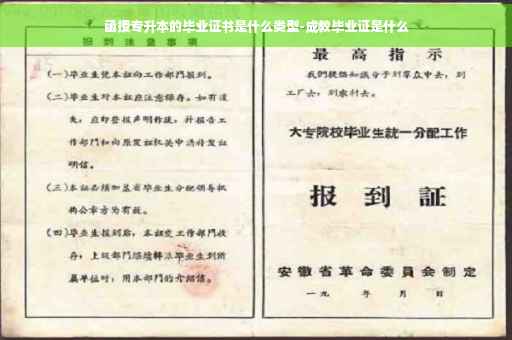 函授专升本的毕业证书是什么类型-成教毕业证是什么
报到注意事项
(一)毕业生凭本证向工作部门报到。
(二)毕业生对本证应注意保存。如有遗
失,应即登报声明作废,并报告工
作部门和向原发证机关申请补发证
明信。
(三)本证必须加盖省毕业生分配领导机
构公章方为有效。
(四)毕业生报到后,本证交工作部门收
存;上级部门
毕业生到所
属单位时,用本部门的介绍信。
最高指示
我们提倡知识分子到群众中去,到
工厂去,到农村去。
大专院校毕业生统一分配工作
报到証
安徽省革命委員会制定
一九 年 月 日